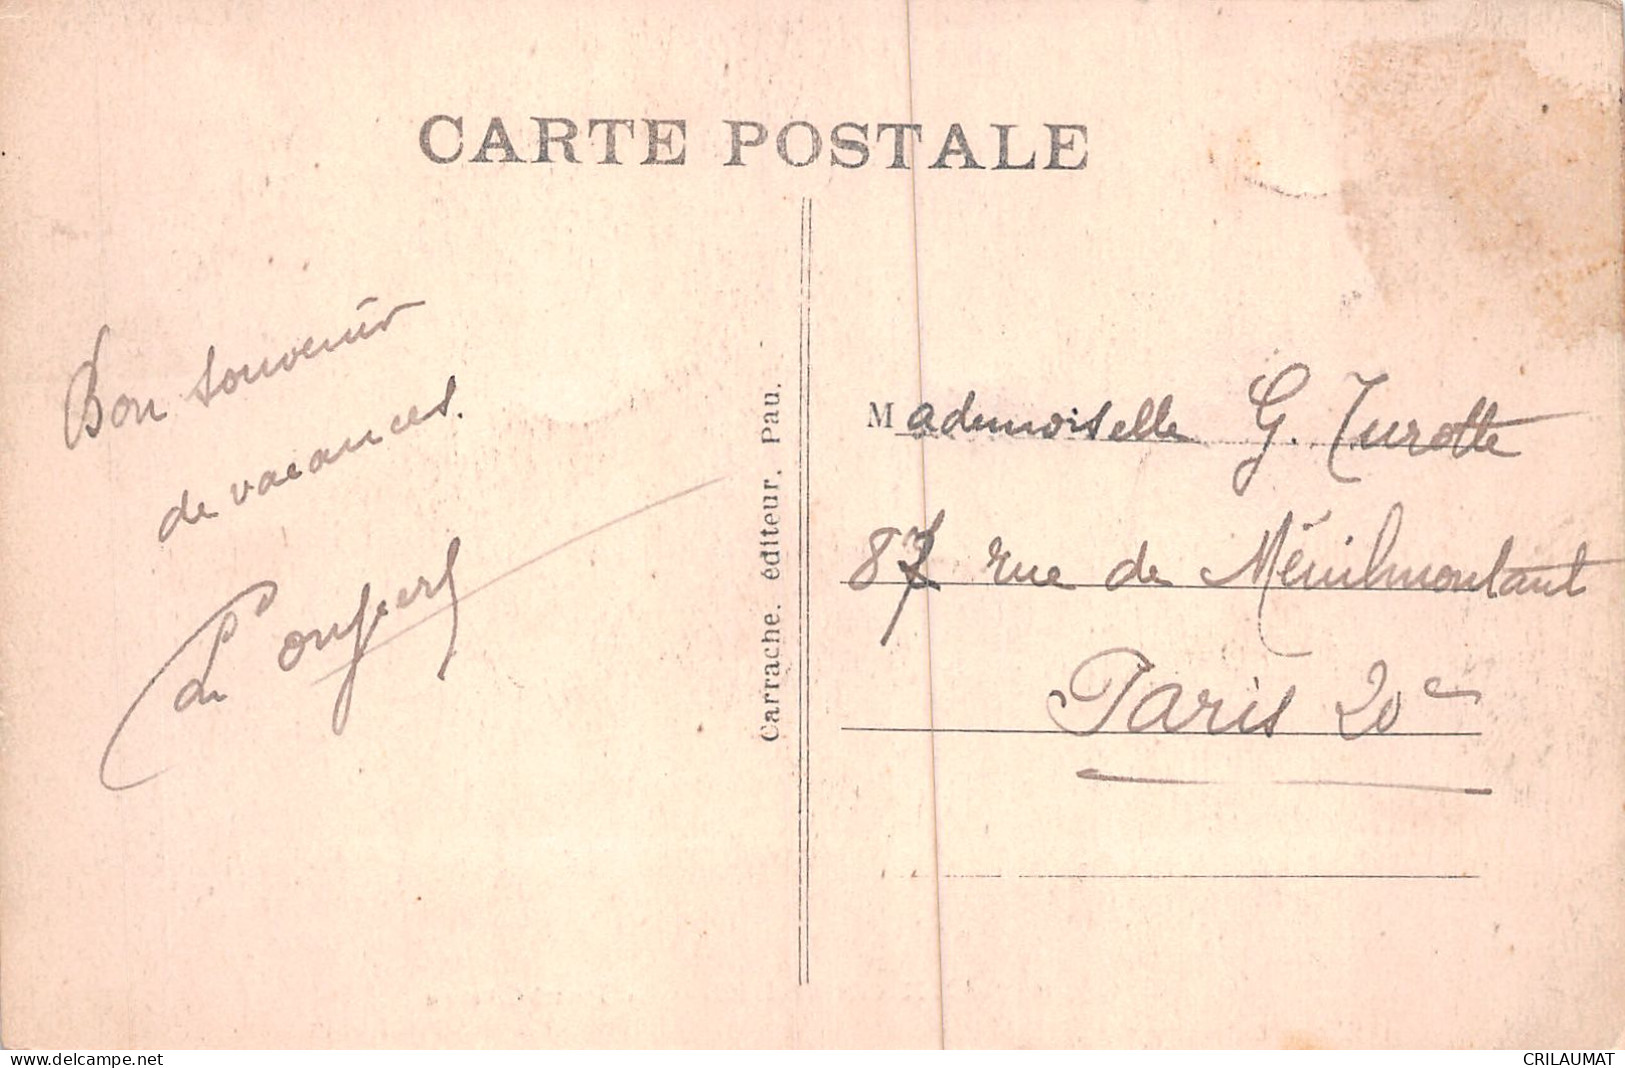 CARTE POSTALE
Bon souvenir
de vacances.
Carrache. éditeur. Pau.
Mademoiselle G. Turotte
87 rue de Ménilmontant
Paris 20e
www.delcampe.net
CRILAUMAT